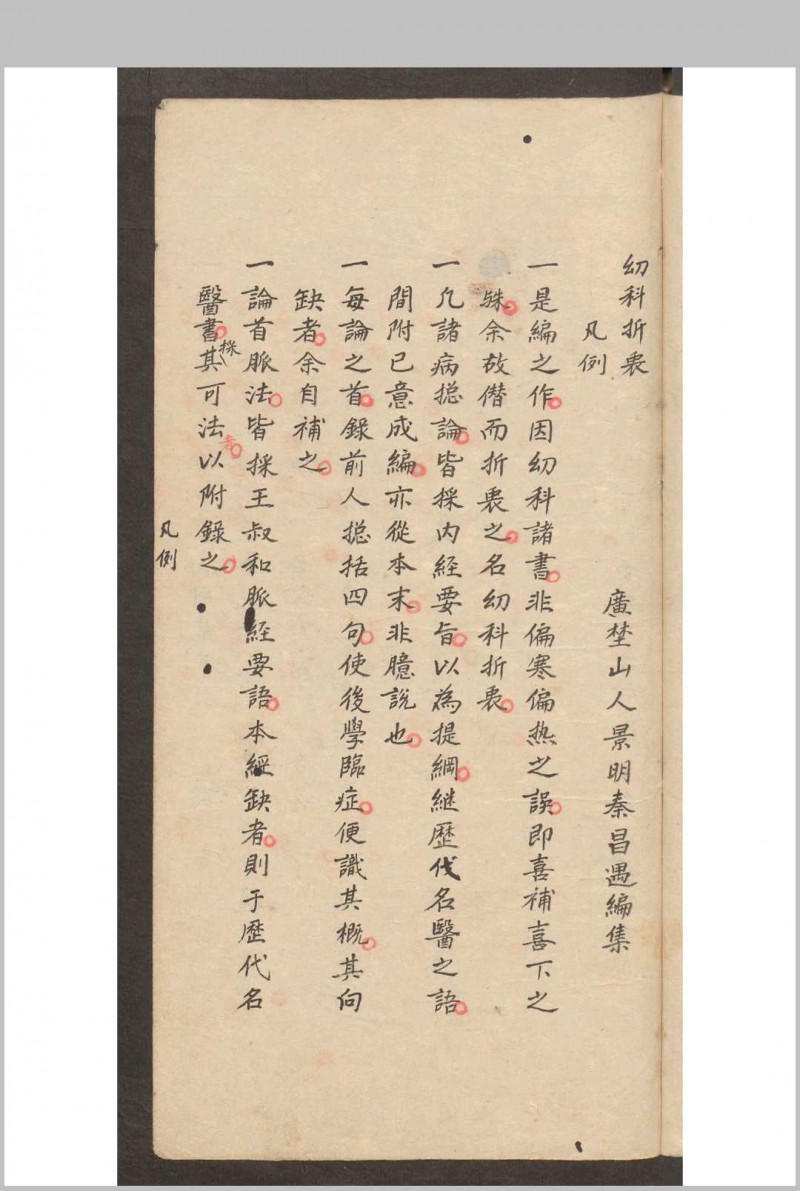 幼科折衷
凡例
廣埜山人景明秦昌遇編集
一是編之作因幼科諸書非偏寒偏热之誤即喜補喜下之
殊余故僭而折衷之名幼科折衷
一凡諸病揔論皆採内経要旨以為提綱継歷代名醫之語
間附已意成編亦從本末非臆說也
一每論之首錄前人揔括四句使後學臨症便識其概其向
缺者余自補之
一論首脈法皆採王叔和脈経要語本經缺者則于歷代名
醫書採其可法者以附錄之
凡例